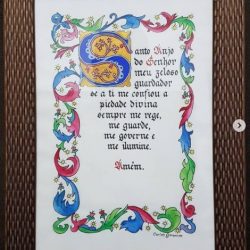 Santo Anjo
do Senhor
meu zeloso
guardador
se a ti me confiou a
piedade divina
sempre me rege,
me guarde,
me governe e
me ilumine.
Amém.